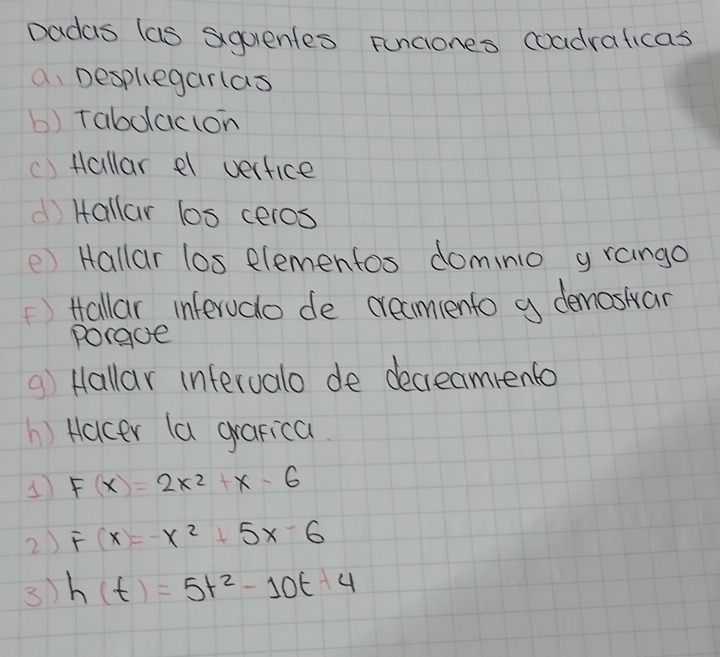 Dadas las siguientes Funciones cuadraticas
a) Desplegarlas
b) Tabulación
c) Hallar el vertice
d) Hallar los ceros
e) Hallar los elementos dominio y rango
F) Hallar intervalo de crecimiento y demostrar
porque
g) Hallar intervalo de decreamiento
h) Hacer la grafica.
1) F(x) = 2x² + x - 6
2) F(x) = -x² + 5x - 6
3) h(t) = 5t² - 10t + 4